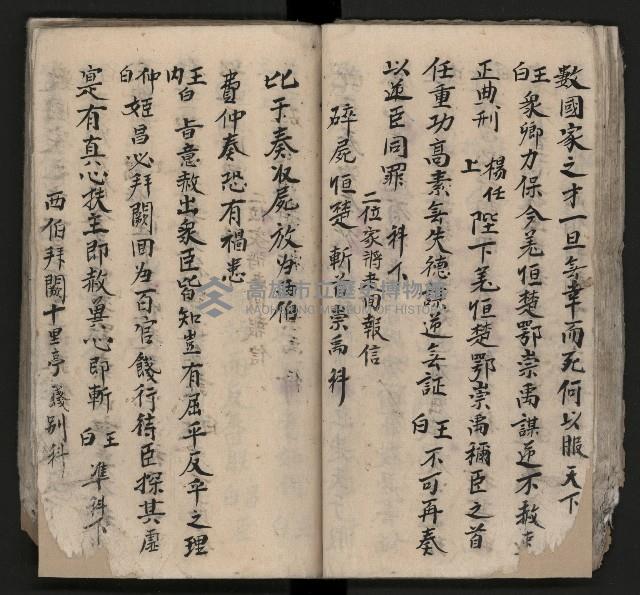 數國家之才一旦無辜而死何以服天下
王白 衆卿力保今羌恒楚鄂崇禹謀逆不赦
正典刑 楊任上 陛下羌恒楚鄂崇禹稱臣之首
任重功高素無失德 逆無証 王白 不可再奏
以逆臣同罪 科下
二位家將走回報信
碎屍恒楚 斬首崇禹科
比干奏收屍放 西伯
費仲奏恐有禍患
王內白 旨意赦出衆臣皆知豈有屈乎反乎之理
仲白 姬昌必拜闕回为百官餞行待臣探其虛
寔有真心扶主即赦異心即斬 王白 準 科下
西伯拜闕十里亭餞别科
高雄市立歷史博物館
KAOHSIUNG MUSEUM OF HISTORY